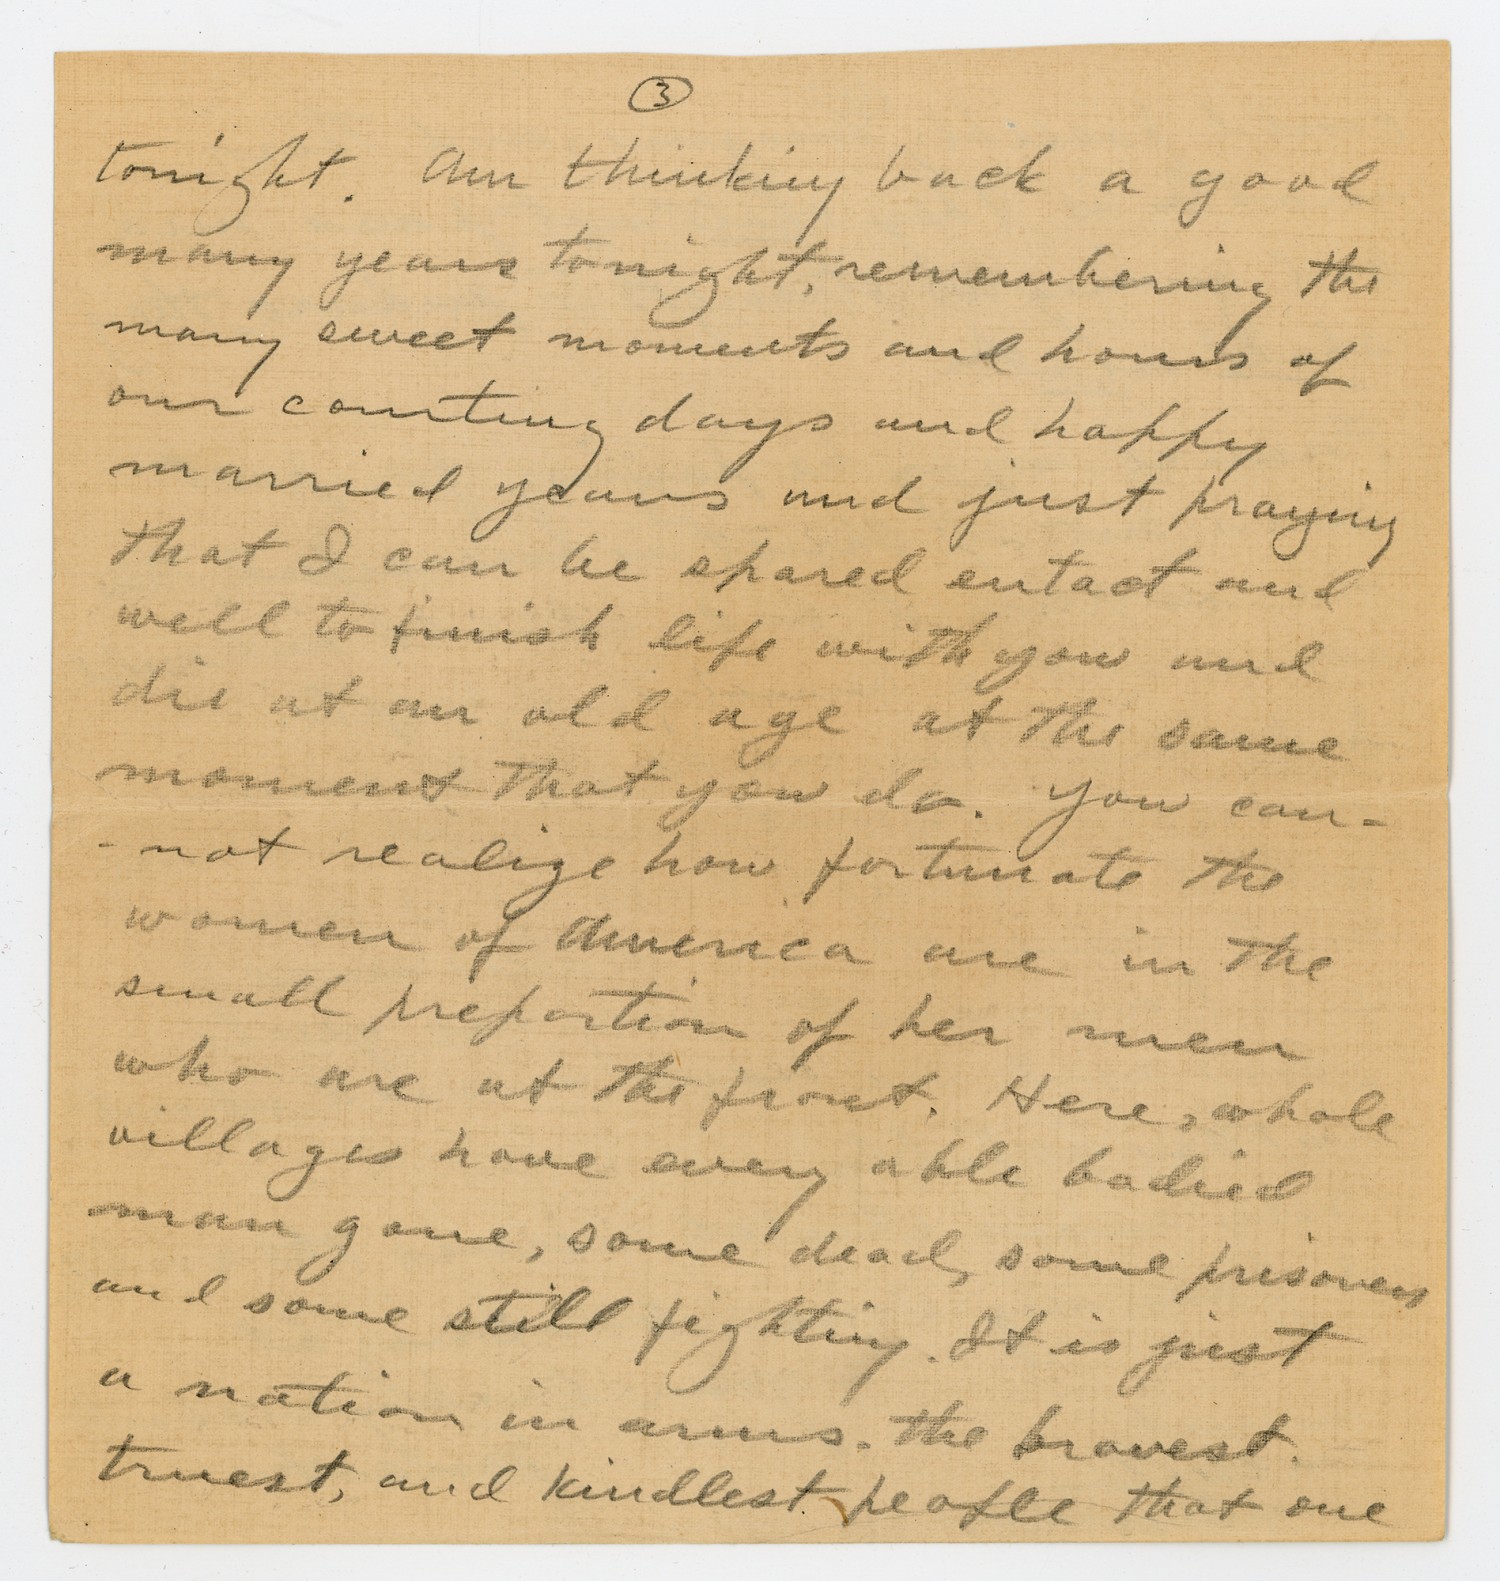 3
tonight. Am thinking back a good
many years tonight, remembering the
many sweet moments and hours of
our courting days and happy
married years and just praying
that I can be spared entact and
well to finish life with you and
die at an old age at the same
moment that you do. You can-
-not realize how fortunate the
women of America are in the
small preportion of her men
who are at the front. Here, whole
villages have every able bodied
man gone, some dead, some prisoners
and some still fighting. It is just
a nation in arms. the bravest.
truest, and kindlest people that one